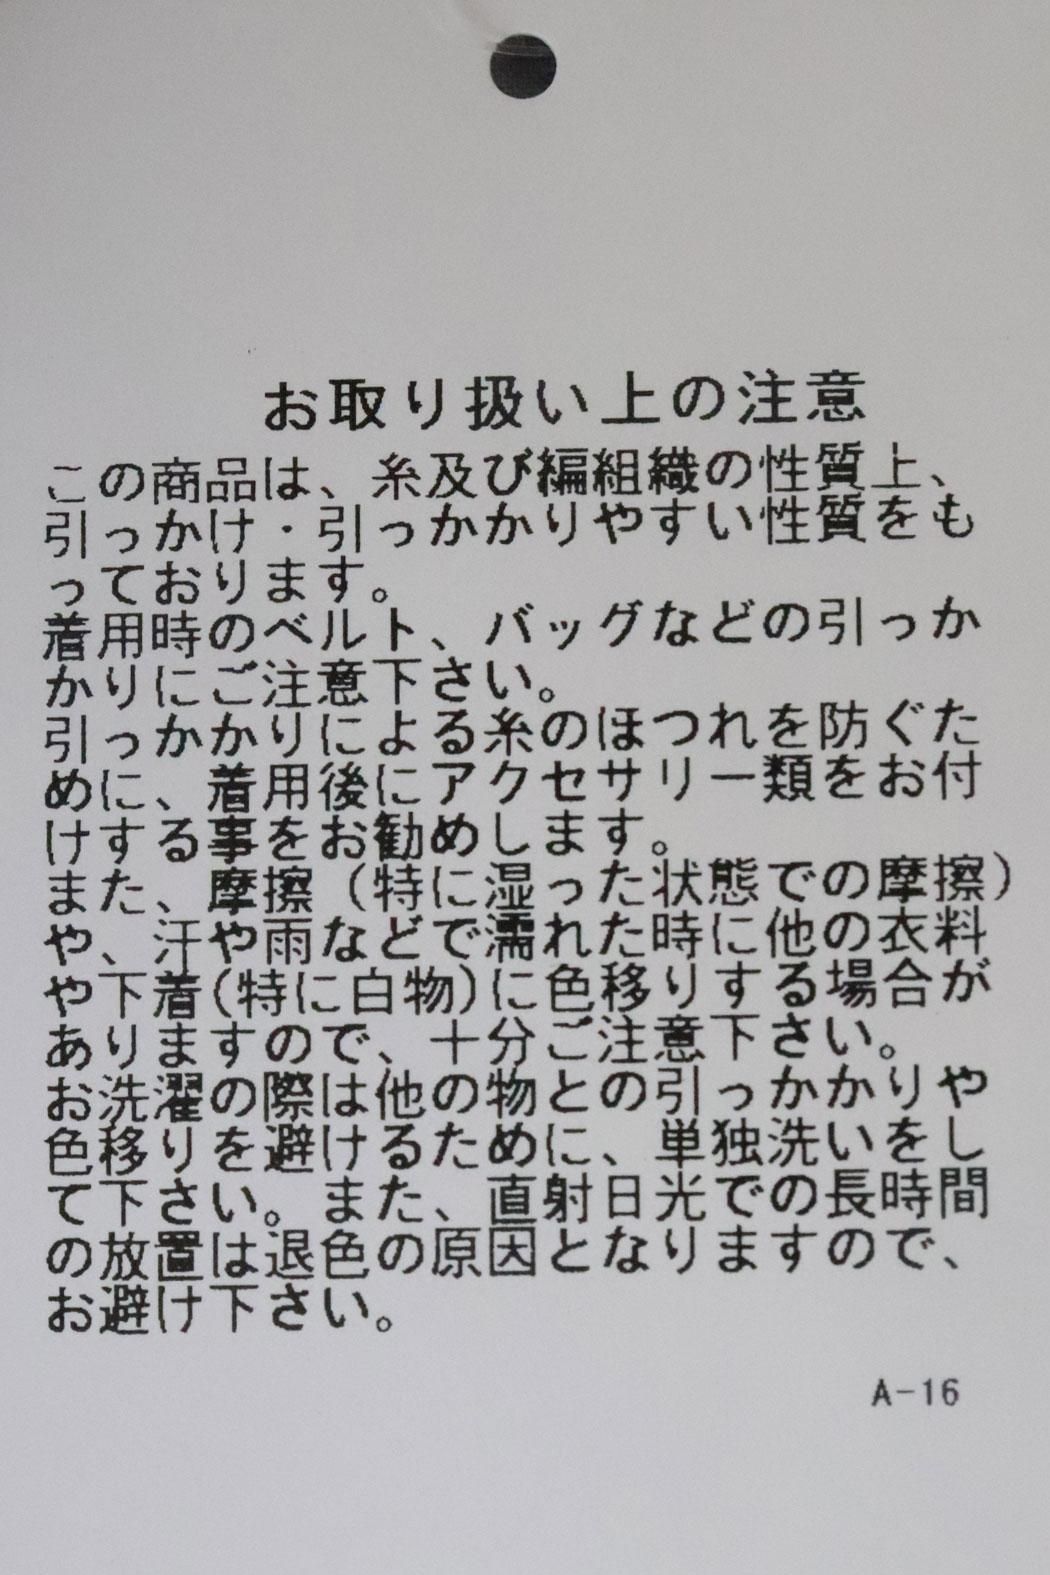 お取り扱い上の注意
この商品は、糸及び編組織の性質上、
引っかけ・引っかかりやすい性質をも
っております。
着用時のベルト、バッグなどの引っか
かりにご注意下さい。
引っかかりによる糸のほつれを防ぐた
めに、着用後にアクセサリー類をお付
けする事をお勧めします。
また、摩擦（特に湿った状態での摩擦）
や、汗や雨などで濡れた時に他の衣料
や下着(特に白物)に色移りする場合が
ありますので、十分ご注意下さい。
お洗濯の際は他の物との引っかかりや
色移りを避けるために、単独洗いをし
て下さい。また、直射日光での長時間
の放置は退色の原因となりますので、
お避け下さい。
A-16